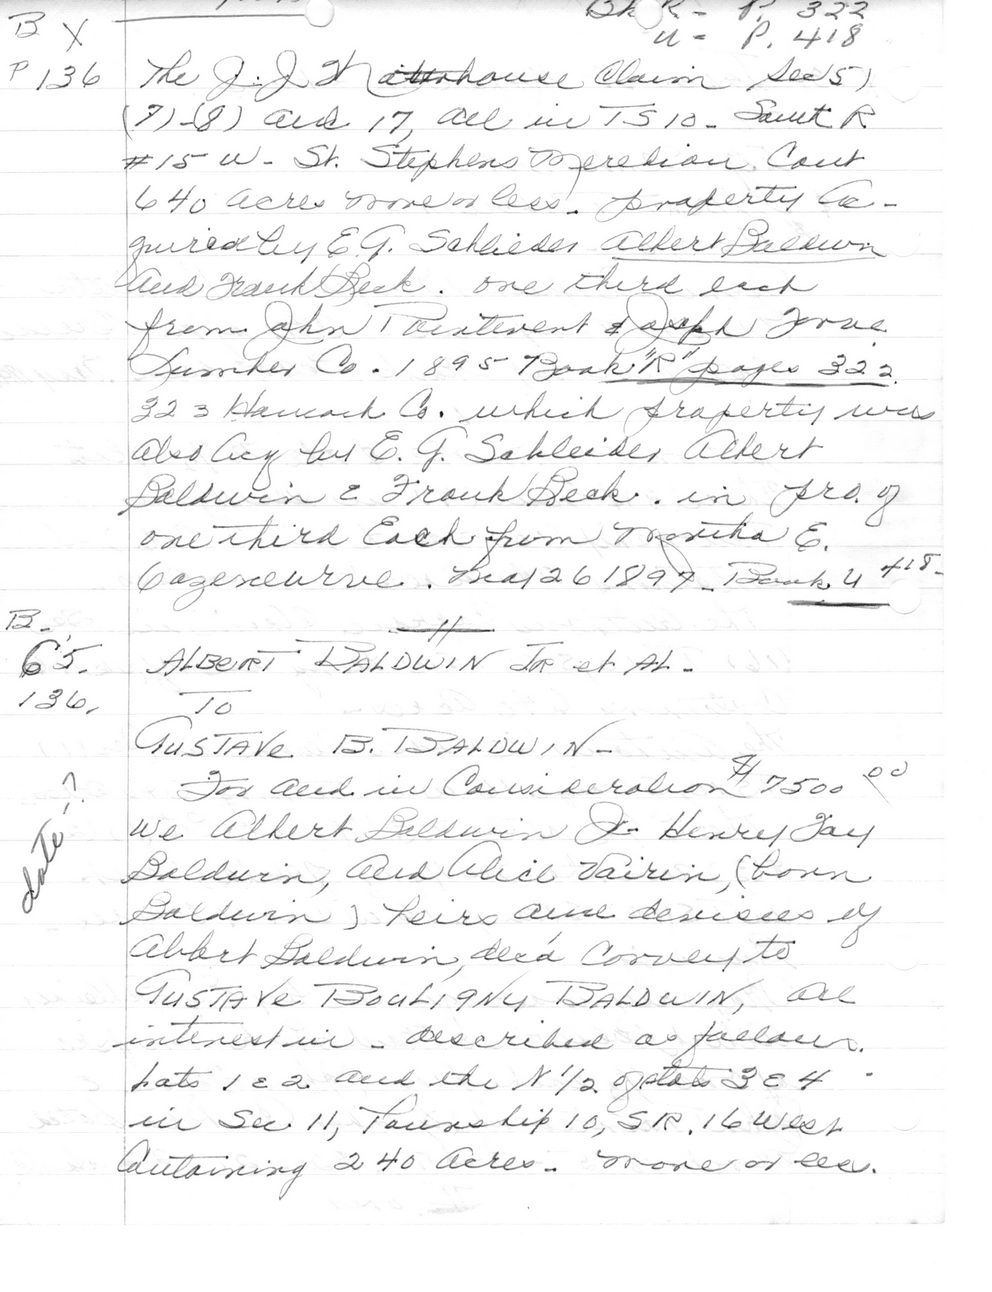 Bk R - P. 322
B X
U = P. 418
P 136 The J. J. W house Claim Sec 5)
(7)-(8) and 17, all in TS 10 - South R
#15 W - St. Stephens Meredian. Cont
640 acres more or less. property Ac-
quired by E. G. Schleider Albert Baldwin
and Frank Beck. one third each
from John Poitevent & Joseph Favre
Lumber Co. 1895 Book "R" pages 322
323 Hancock Co. which property was
also Acq by E. G. Schleider Albert
Baldwin & Frank Beck. in pro. of
one third Each from Martha E.
Cazeneurve. May 26 1897 - Book U 418-
B.
65. ALBERT BALDWIN JR et AL -
136. TO
GUSTAVE B. BALDWIN -
date -?
For and in Consideration $7500 00
We Albert Baldwin Jr - Henry Fay
Baldwin, and Alice Vairin, (born
Baldwin) heirs and devisees of
Albert Baldwin, dec'd convey to
GUSTAVE BOULIGNY BALDWIN, all
interest in - described as follows.
Lots 1 & 2 and the N 1/2 of lots 3 & 4
in Sec. 11, Township 10, S R. 16 West
Containing 240 Acres - more or less.